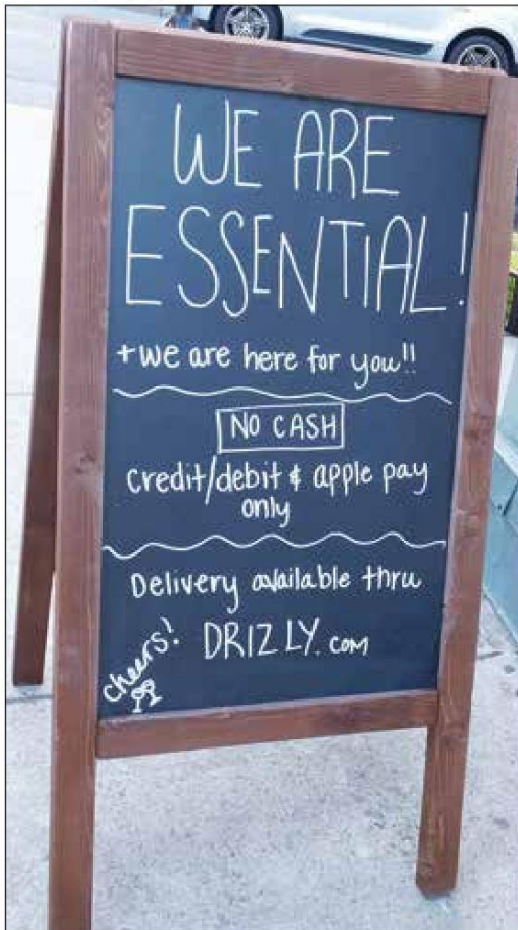 WE ARE
ESSENTIAL!
+ we are here for you!!
NO CASH
credit/debit & apple pay
only
Delivery available thru
DRIZLY.COM
cheers!